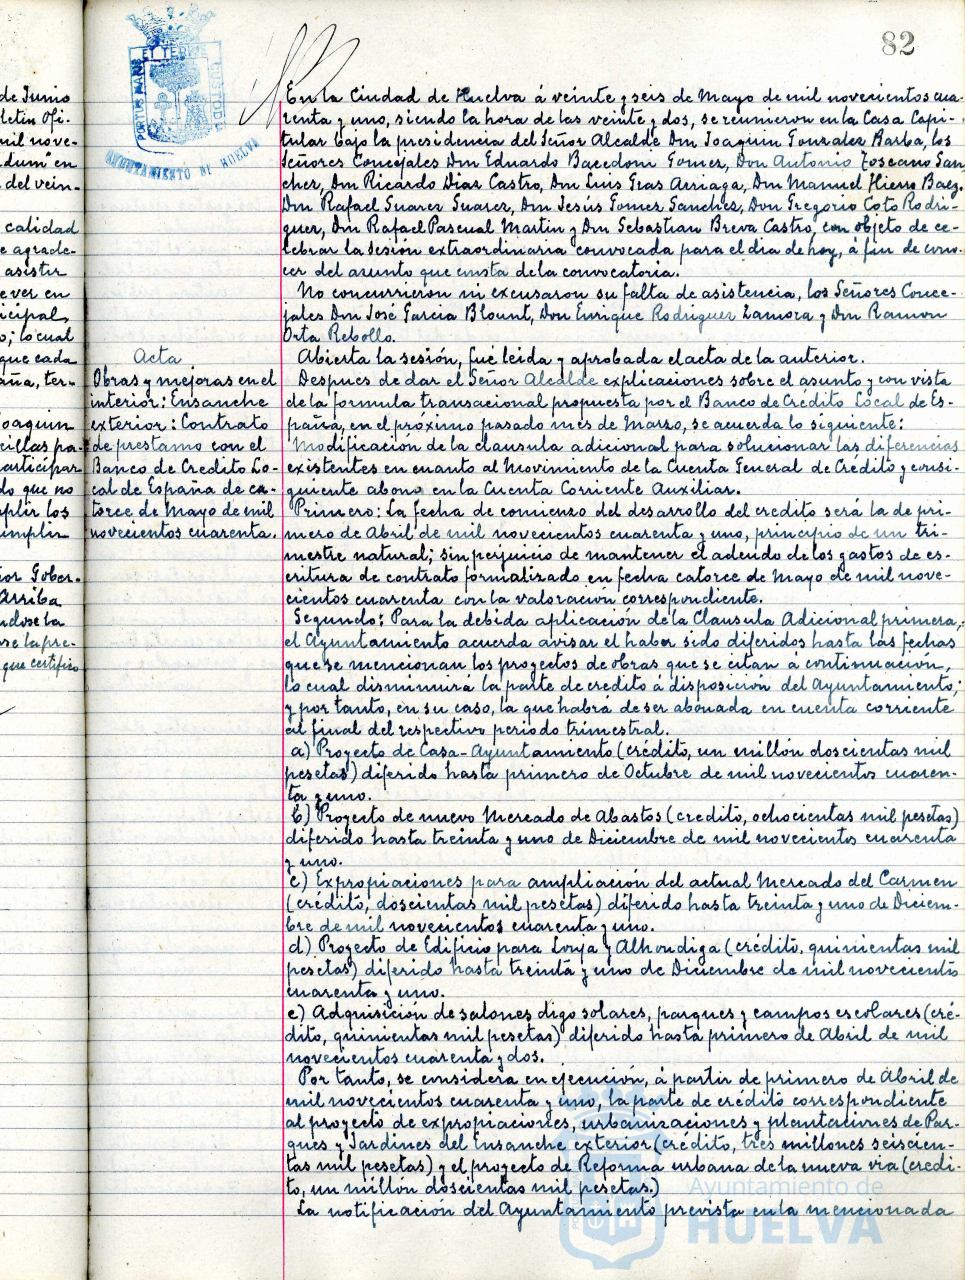 82
PORTUS MARIS ET TERRE CUSTODIA
AYUNTAMIENTO DE HUELVA
de Junio
letin Ofi-
mil nove-
dum" en
del vein-
calidad
e agrade-
asistir
ever en
icipal,
o; lo cual
que cada
aña, ter-
oaquin
cillas pa-
participar
do que no
mplir los
umplin
or Gober-
Arriba
ndose la
se la pre-
que certifico
Acta
Obras y mejoras en el
interior: Ensanche
exterior: Contrato
de prestamo con el
Banco de Credito Lo-
cal de España de ca-
torce de Mayo de mil
novecientos cuarenta.
En la Ciudad de Huelva á veinte y seis de Mayo de mil novecientos cua-
renta y uno, siendo la hora de las veinte y dos, se reunieron en la Casa Capi-
tular bajo la presidencia del Señor Alcalde Don Joaquin Gonzalez Barba, los
Señores Concejales Don Eduardo Bacedoni Gomez, Don Antonio Toscano San
chez, Don Ricardo Diaz Castro, Don Luis Gras Arriaga, Don Manuel Hierro Baez.
Don Rafael Suarez Suarez, Don Jesús Gomez Sanchez, Don Gregorio Coto Rodri-
guez, Don Rafael Pascual Martin y Don Sebastian Breva Castro, con objeto de ce-
lebrar la sesión extraordinaria convocada para el dia de hoy, á fin de cono-
cer del asunto que consta de la convocatoria.
No concurrieron ni excusaron su falta de asistencia, los Señores Conce-
jales Don José Garcia Blount, Don Enrique Rodriguez Zamora y Don Ramon
Orta Rebollo.
Abierta la sesión, fué leida y aprobada el acta de la anterior.
Despues de dar el Señor Alcalde explicaciones sobre el asunto y con vista
de la formula transacional propuesta por el Banco de Crédito Local de Es-
paña, en el próximo pasado mes de Marzo, se acuerda lo siguiente:
Modificación de la clausula adicional para solucionar las diferencias
existentes en cuanto al Movimiento de la Cuenta General de Crédito y consi-
guiente abono en la Cuenta Corriente Auxiliar.
Primero: La fecha de comienzo del desarrollo del credito será la de pri-
mero de Abril de mil novecientos cuarenta y uno, principio de un tri-
mestre natural; sin perjuicio de mantener el adeudo de los gastos de es-
critura de contrato formalizado en fecha catorce de Mayo de mil nove-
cientos cuarenta con la valoracion correspondiente.
Segundo: Para la debida aplicación de la Clausula Adicional primera,
el Ayuntamiento acuerda avisar el haber sido diferidos hasta las fechas
que se mencionan los proyectos de obras que se citan á continuación,
lo cual disminuirá la parte de credito á disposición del Ayuntamiento;
y por tanto, en su caso, la que habrá de ser abonada en cuenta corriente
al final del respectivo periodo trimestral.
a) Proyecto de Casa-Ayuntamiento (crédito, un millón doscientas mil
pesetas) diferido hasta primero de Octubre de mil novecientos cuaren-
ta y uno.
b) Proyecto de nuevo Mercado de Abastos (credito, ochocientas mil pesetas)
diferido hasta treinta y uno de Diciembre de mil novecientos cuarenta
y uno.
c) Expropiaciones para ampliación del actual Mercado del Carmen
(crédito, doscientas mil pesetas) diferido hasta treinta y uno de Diciem-
bre de mil novecientos cuarenta y uno.
d) Proyecto de Edificio para Lonja y Alhondiga (crédito, quinientas mil
pesetas) diferido hasta treinta y uno de Diciembre de mil novecientos
cuarenta y uno.
e) Adquisición de salones digo solares, parques y campos escolares (cré-
dito, quinientas mil pesetas) diferido hasta primero de Abril de mil
novecientos cuarenta y dos.
Por tanto, se considera en ejecución, á partir de primero de Abril de
mil novecientos cuarenta y uno, la parte de crédito correspondiente
al proyecto de expropiaciones, urbanizaciones y plantaciones de Par-
ques y Jardines del Ensanche exterior (crédito, tres millones seiscien-
tas mil pesetas) y el proyecto de Reforma urbana de la nueva via (credi-
to, un millón doscientas mil pesetas.)
La notificacion del Ayuntamiento prevista en la mencionada
Ayuntamiento de
HUELVA